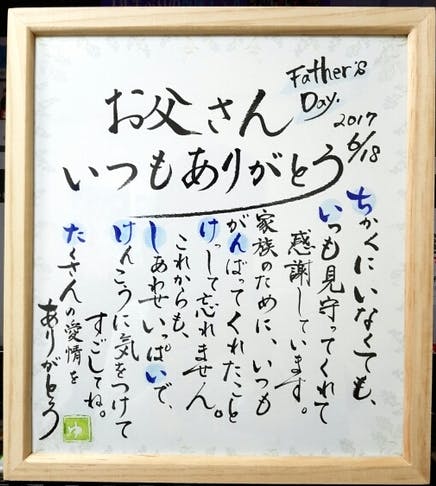 Father's
Day.
2017
6/18
お父さん
いつもありがとう
ちかくにいなくても、
いつも見守ってくれて
感謝しています。
家族のために、いつも
がんばってくれたこと
けっして忘れません。
これからも、
しあわせいっぱいで、
けんこうに気をつけて
すごしてね。
たくさんの愛情を
ありがとう
ゆ